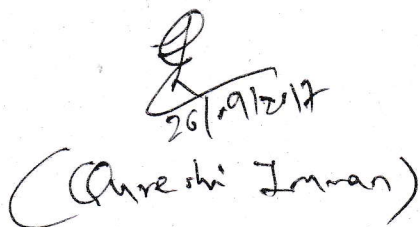 26/09/2017
(Qureshi Imran)